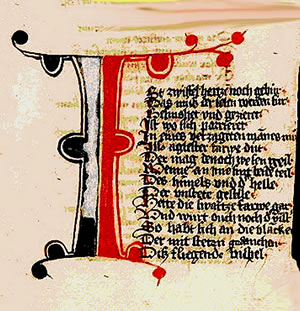 St zwiffel hertze noch gebur
Das muß der selen werden sur
Gesmehet und gezieret
Ist wo sich parrieret
In eines verzagten mannes muot
Als agelester varwe duot
Der mag dennoch wesen geil
Wenne an ime sint beide teil
Des himels und d' helle
Der unstete geselle
Hatt die swartze varwe gar
Und wurt ouch noch d'
So habt sich an die blancken
Der mit steten gedancken
Dis fliegende bispel